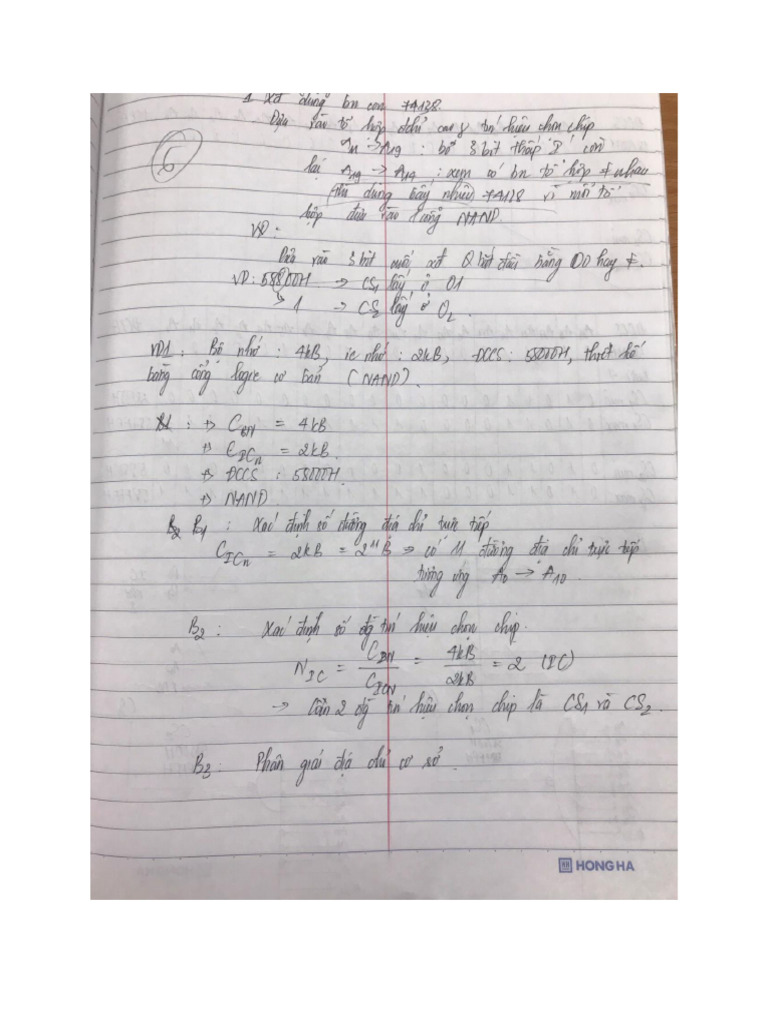 1. Xđ dùng bn con 74138.
Dựa vào tổ hợp địa chỉ của tín hiệu chọn chip
A11 → A19 : bỏ 3 bit thấp I còn
lại A19 → A14 : xem có bn tổ hợp ≠ nhau
thì dùng bấy nhiêu 74138 vì mỗi tổ
hợp đưa vào 1 cổng NAND.
6
VD:
Dựa vào 3 bit cuối xđ O bắt đầu bằng O0 hay ≠.
VD: 58800H → CS1 lấy ở O1
↳ 1 → CS2 lấy ở O2.
VD1 : Bộ nhớ : 4kB, ic nhớ : 2kB, ĐCCS : 58000H, thiết kế
bằng cổng logic cơ bản (NAND).
B1 : +> CBN = 4kB
+> CICn = 2kB.
+> ĐCCS : 58000H.
+> NAND
B2 B1 : Xác định số đường địa chỉ trực tiếp
CICn = 2kB = 2^11 B => có 11 đường địa chỉ trực tiếp
tương ứng A0 → A10.
B2 : Xác định số đg tín hiệu chọn chip.
NIC = CBN / CICN = 4kB / 2kB = 2 (IC)
→ Cần 2 đg tín hiệu chọn chip là CS1 và CS2.
B3 : Phân giải địa chỉ cơ sở.
HONG HA